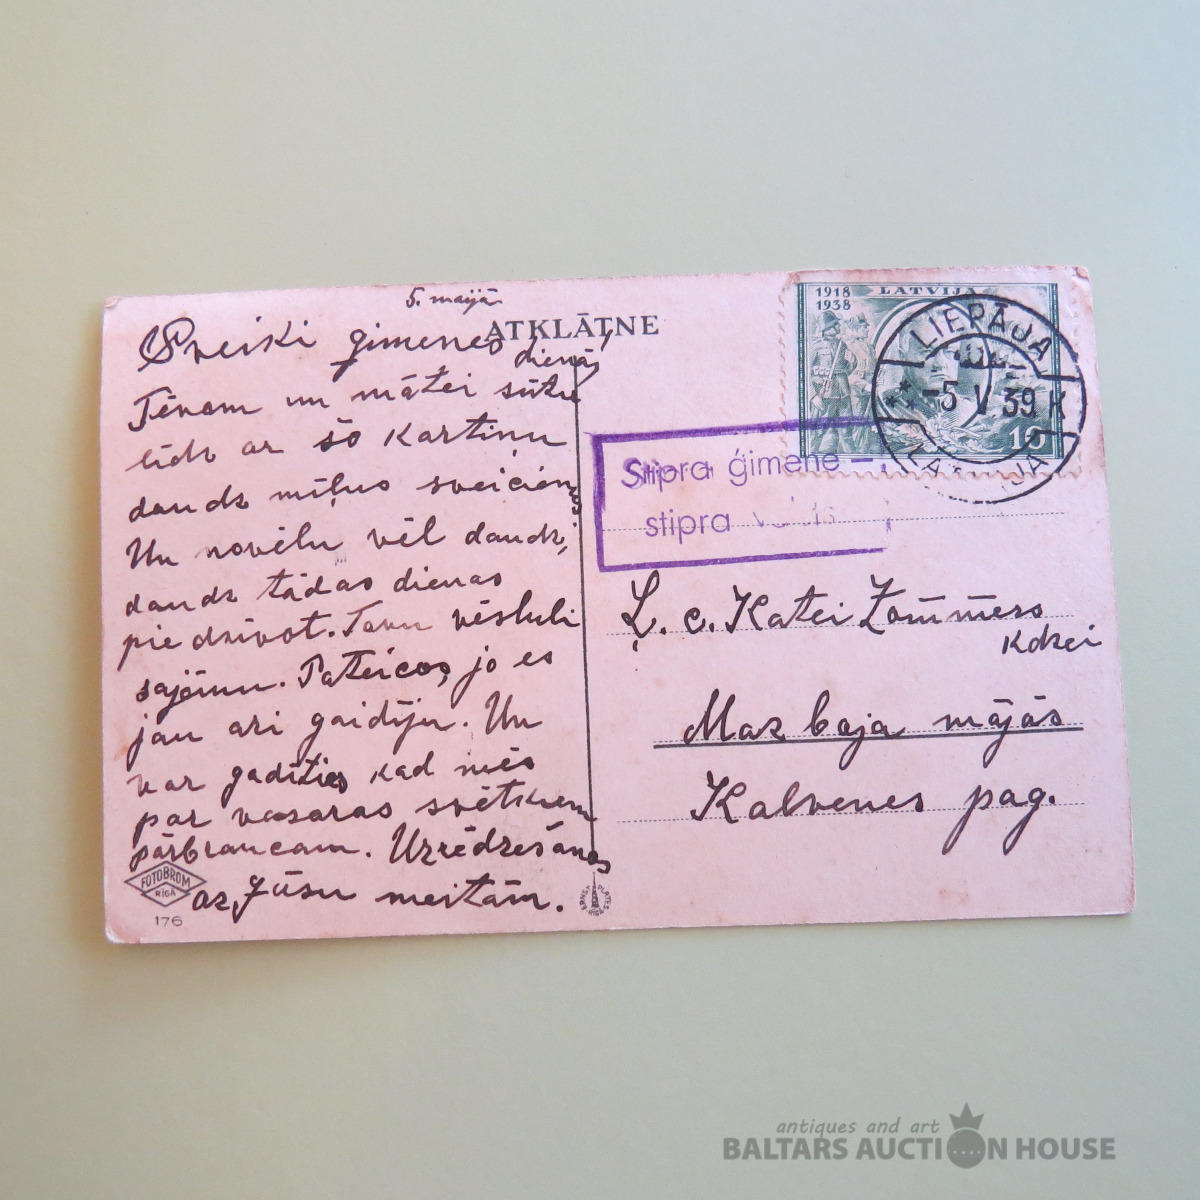 5. maijā
ATKLĀTNE
Sveiki ģimenes
dienā,
Tēvam un mātei sūtu
līdz ar šo kartiņu
daudz mīļus sveicienus
Un novēlu vēl daudz,
daudz tādas dienas
piedzīvot. Tavu vēstuli
saņēmu. Pateicos, jo es
jau arī gaidīju. Un
var gadīties kad mēs
par vasaras svētkiem
pārbraucam. Uzredzēšanos
az Jūsu meitām.
FOTOBROM
RĪGA
176
ERNST PLATES RĪGĀ
1918 LATVIJA
1938
10
LIEPĀJA
-5 V 39 K
LATVIJA
Stipra ģimene –
stipra
Ļ. c. Katei Zommers
kdzei
Mazboja mājās
Kalvenes pag.
antiques and art
BALTARS AUCTION HOUSE